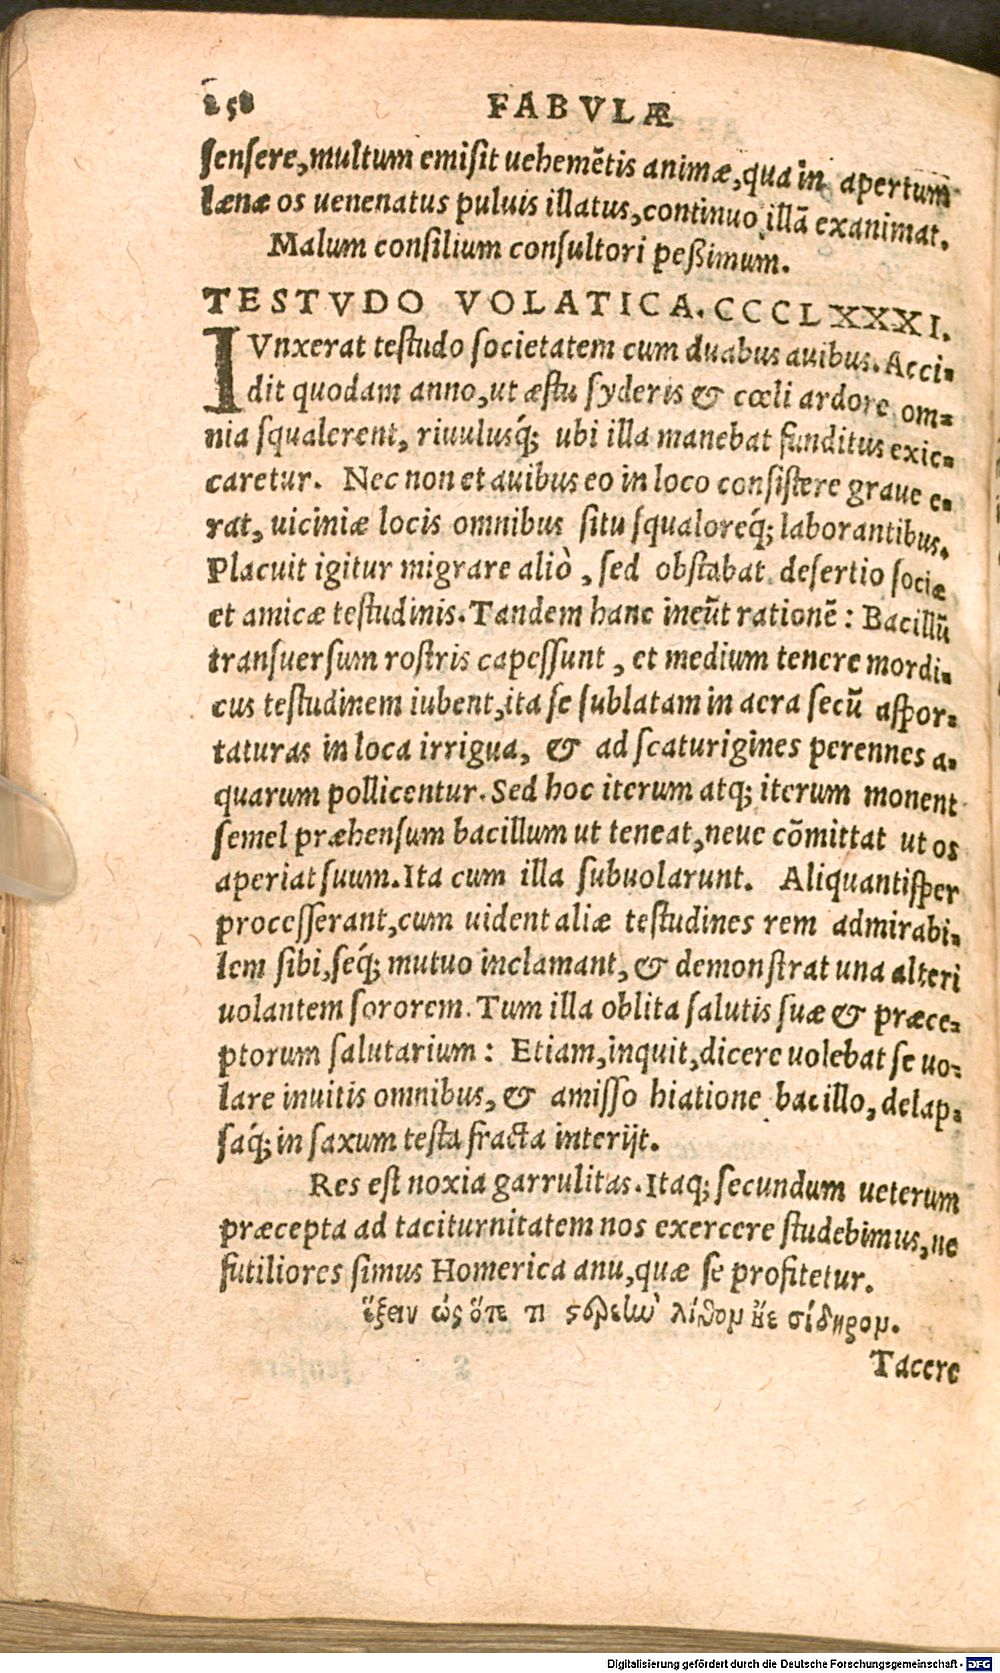 258 FABVLÆ
ſenſere, multum emiſit uehemẽtis animæ, qua in apertum
lænæ os uenenatus puluis illatus, continuo illã exanimat.
Malum conſilium conſultori peßimum.
TESTVDO VOLATICA. CCCLXXXI.
IVnxerat teſtudo ſocietatem cum duabus auibus. Acci-
dit quodam anno, ut æſtu ſyderis & cœli ardore om-
nia ſqualerent, riuulusq́; ubi illa manebat funditus exic-
caretur. Nec non et auibus eo in loco conſiſtere graue e-
rat, uiciniæ locis omnibus ſitu ſqualoreq́; laborantibus.
Placuit igitur migrare aliò, ſed obſtabat deſertio ſociæ
et amicæ teſtudinis. Tandem hanc ineũt rationẽ: Bacillũ
tranſuerſum roſtris capeſſunt, et medium tenere mordi-
cus teſtudinem iubent, ita ſe ſublatam in aera ſecũ aſpor-
taturas in loca irrigua, & ad ſcaturigines perennes a-
quarum pollicentur. Sed hoc iterum atq; iterum monent
ſemel præhenſum bacillum ut teneat, neue cõmittat ut os
aperiat ſuum. Ita cum illa ſubuolarunt. Aliquantiſper
proceſſerant, cum uident aliæ teſtudines rem admirabi-
lem ſibi, ſeq́; mutuo inclamant, & demonſtrat una alteri
uolantem ſororem. Tum illa oblita ſalutis ſuæ & præce-
ptorum ſalutarium: Etiam, inquit, dicere uolebat ſe uo-
lare inuitis omnibus, & amiſſo hiatione bacillo, delap-
ſaq́; in ſaxum teſta fracta interijt.
Res eſt noxia garrulitas. Itaq; ſecundum ueterum
præcepta ad taciturnitatem nos exercere ſtudebimus, ne
futiliores ſimus Homerica anu, quæ ſe profitetur.
ἕξειν ὡς ὅτε τι στερεὴ λίθον ἠὲ σίδηρον.
Tacere
Digitalisierung gefördert durch die Deutsche Forschungsgemeinschaft - DFG